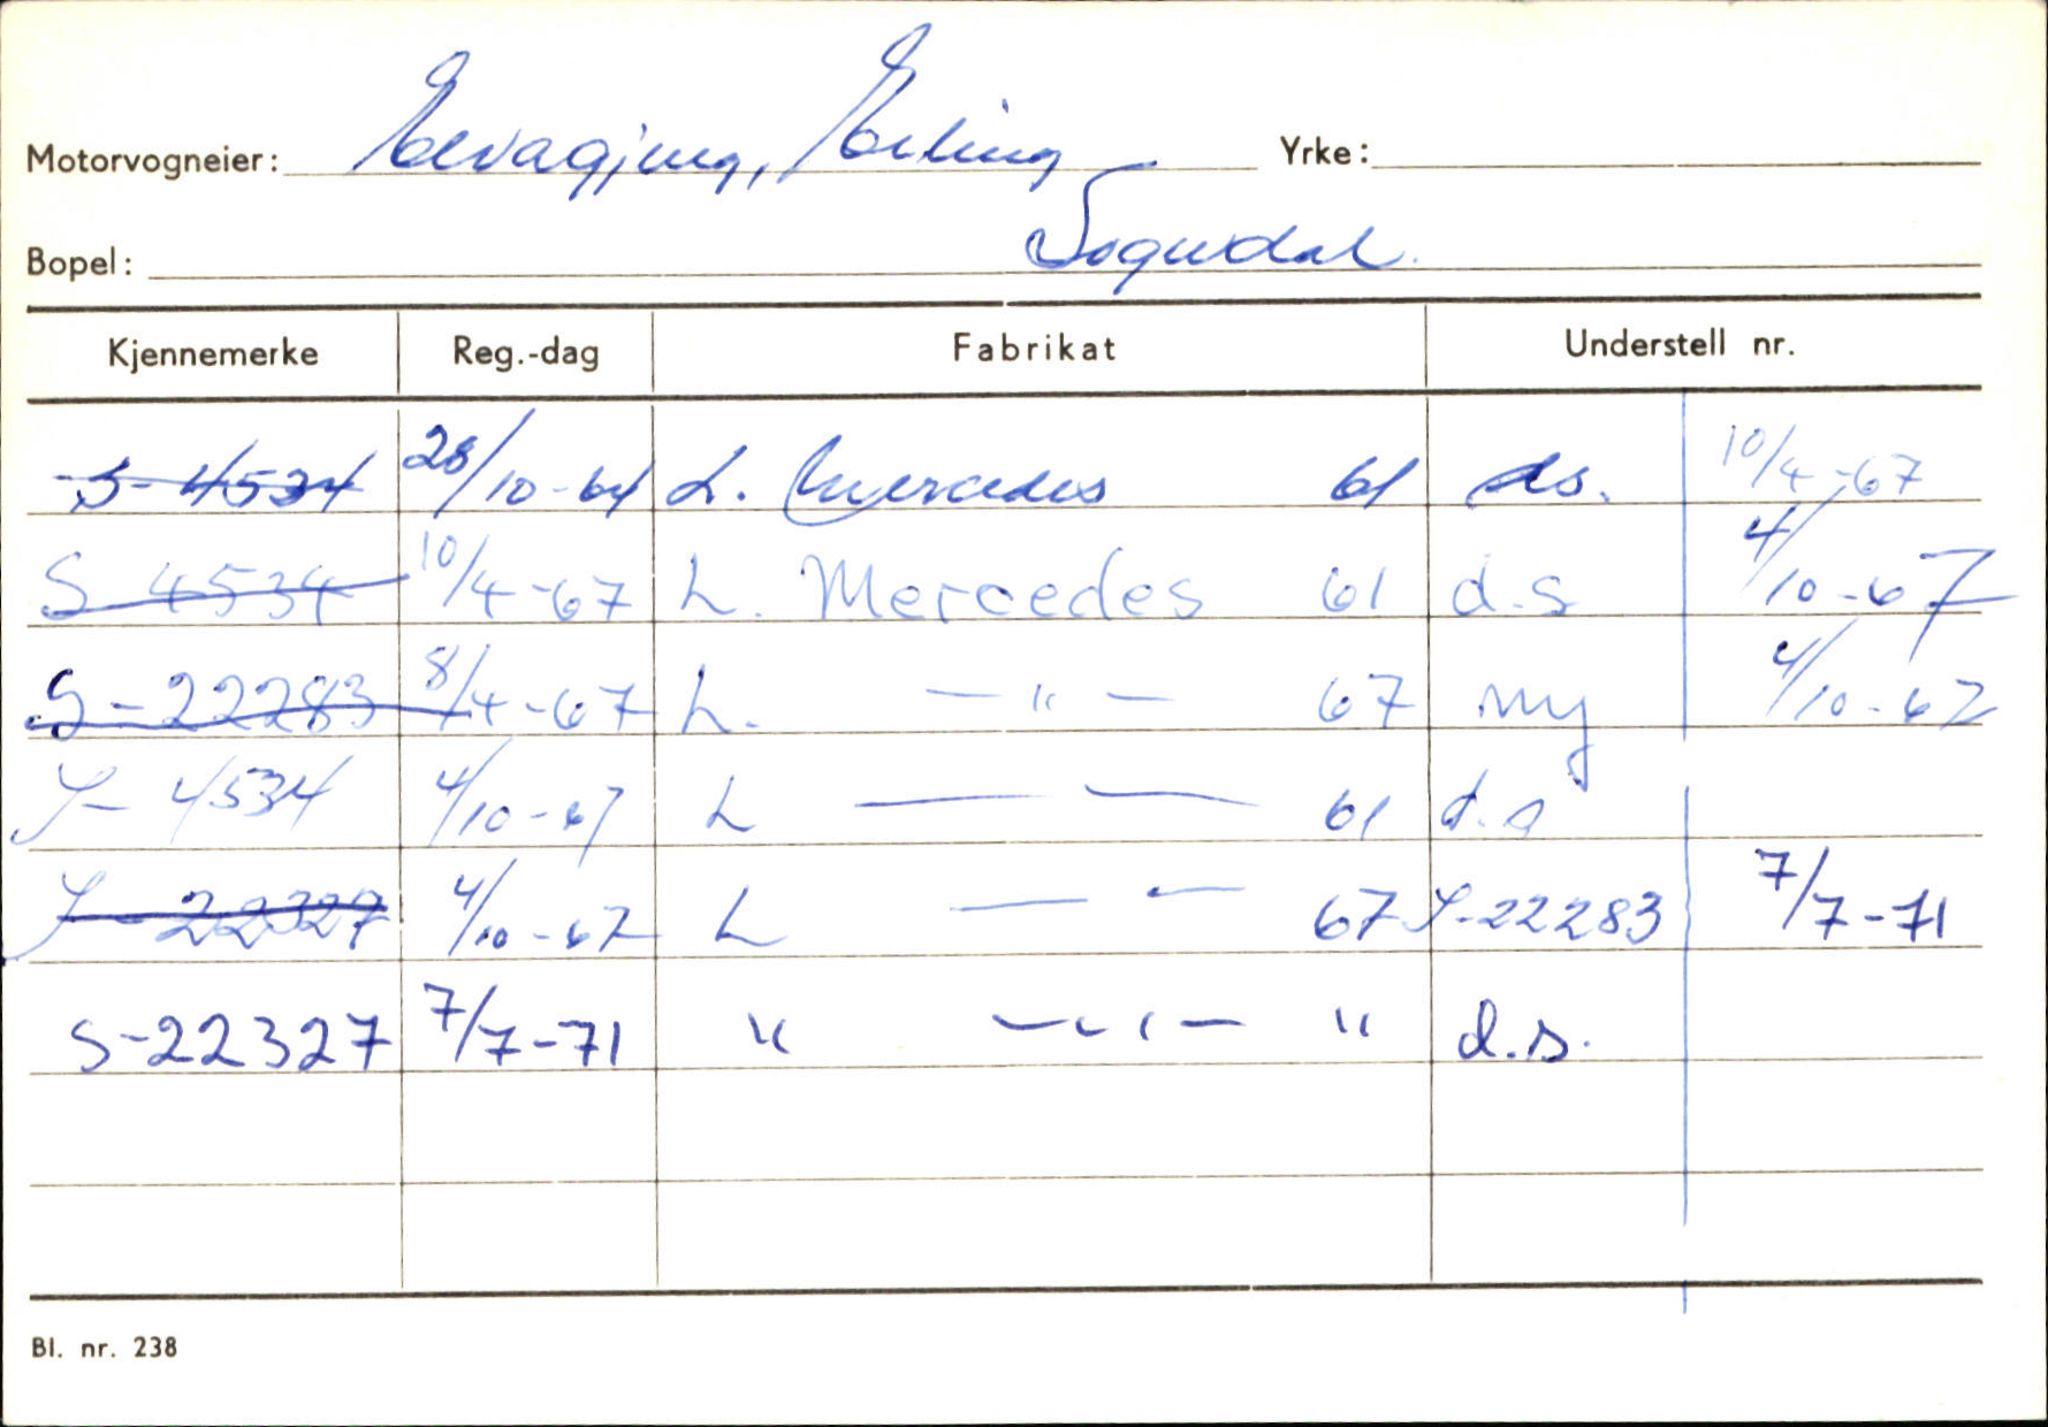 Motorvogneier: Elvagjeng, Erling Yrke:
Bopel: Sogndal.
Kjennemerke Reg.-dag Fabrikat Understell nr.
S-4534 28/10-64 L. Mercedes 61 ds. 10/4-67
S 4534 10/4-67 L. Mercedes 61 d.s 4/10-67
S-22283 8/4-67 L. — " — 67 ny 4/10-67
S-4534 4/10-67 L — — 61 d.s
S-22327 4/10-67 L — — 67 S-22283 7/7-71
S-22327 7/7-71 " — " — " d.s.
Bl. nr. 238